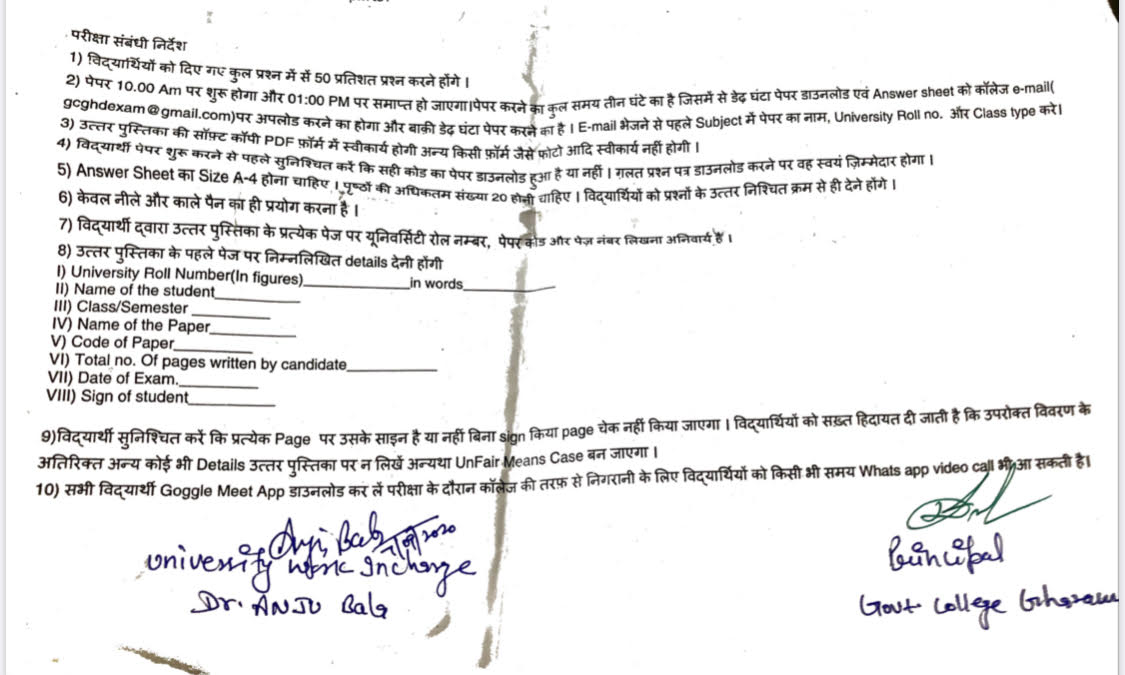 परीक्षा संबंधी निर्देश
1) विद्यार्थियों को दिए गए कुल प्रश्न में सें 50 प्रतिशत प्रश्न करने होंगे ।
2) पेपर 10.00 Am पर शुरू होगा और 01:00 PM पर समाप्त हो जाएगा।पेपर करने का कुल समय तीन घंटे का है जिसमें से डेढ़ घंटा पेपर डाउनलोड एवं Answer sheet को कॉलेज e-mail(
gcghdexam@gmail.com)पर अपलोड करने का होगा और बाक़ी डेढ़ घंटा पेपर करने का है । E-mail भेजने से पहले Subject में पेपर का नाम, University Roll no. और Class type करे।
3) उत्तर पुस्तिका की सॉफ़्ट कॉपी PDF फ़ॉर्म में स्वीकार्य होगी अन्य किसी फ़ॉर्म जैसे फोटो आदि स्वीकार्य नहीं होगी ।
4) विद्यार्थी पेपर शुरू करने से पहले सुनिश्चित करें कि सही कोड का पेपर डाउनलोड हुआ है या नहीं । ग़लत प्रश्न पत्र डाउनलोड करने पर वह स्वयं ज़िम्मेदार होगा ।
5) Answer Sheet का Size A-4 होना चाहिए । पृष्ठों की अधिकतम संख्या 20 होनी चाहिए । विद्यार्थियों को प्रश्नों के उत्तर निश्चित क्रम से ही देने होंगे ।
6) केवल नीले और काले पैन का ही प्रयोग करना है ।
7) विद्यार्थी द्वारा उत्तर पुस्तिका के प्रत्येक पेज पर यूनिवर्सिटी रोल नम्बर, पेपर कोड और पेज़ नंबर लिखना अनिवार्य है ।
8) उत्तर पुस्तिका के पहले पेज पर निम्नलिखित details देनी होंगी
I) University Roll Number(In figures)____________in words____________
II) Name of the student____________
III) Class/Semester ___________
IV) Name of the Paper____________
V) Code of Paper___________
VI) Total no. Of pages written by candidate____________
VII) Date of Exam.___________
VIII) Sign of student____________
9)विद्यार्थी सुनिश्चित करें कि प्रत्येक Page पर उसके साइन है या नहीं बिना sign किया page चेक नहीं किया जाएगा । विद्यार्थियों को सख़्त हिदायत दी जाती है कि उपरोक्त विवरण के
अतिरिक्त अन्य कोई भी Details उत्तर पुस्तिका पर न लिखें अन्यथा UnFair Means Case बन जाएगा ।
10) सभी विद्यार्थी Goggle Meet App डाउनलोड कर लें परीक्षा के दौरान कॉलेज की तरफ़ से निगरानी के लिए विद्यार्थियों को किसी भी समय Whats app video call भी आ सकती है।
Anju Bala
University Work Incharge
Dr. ANJU Bala
Principal
Govt College